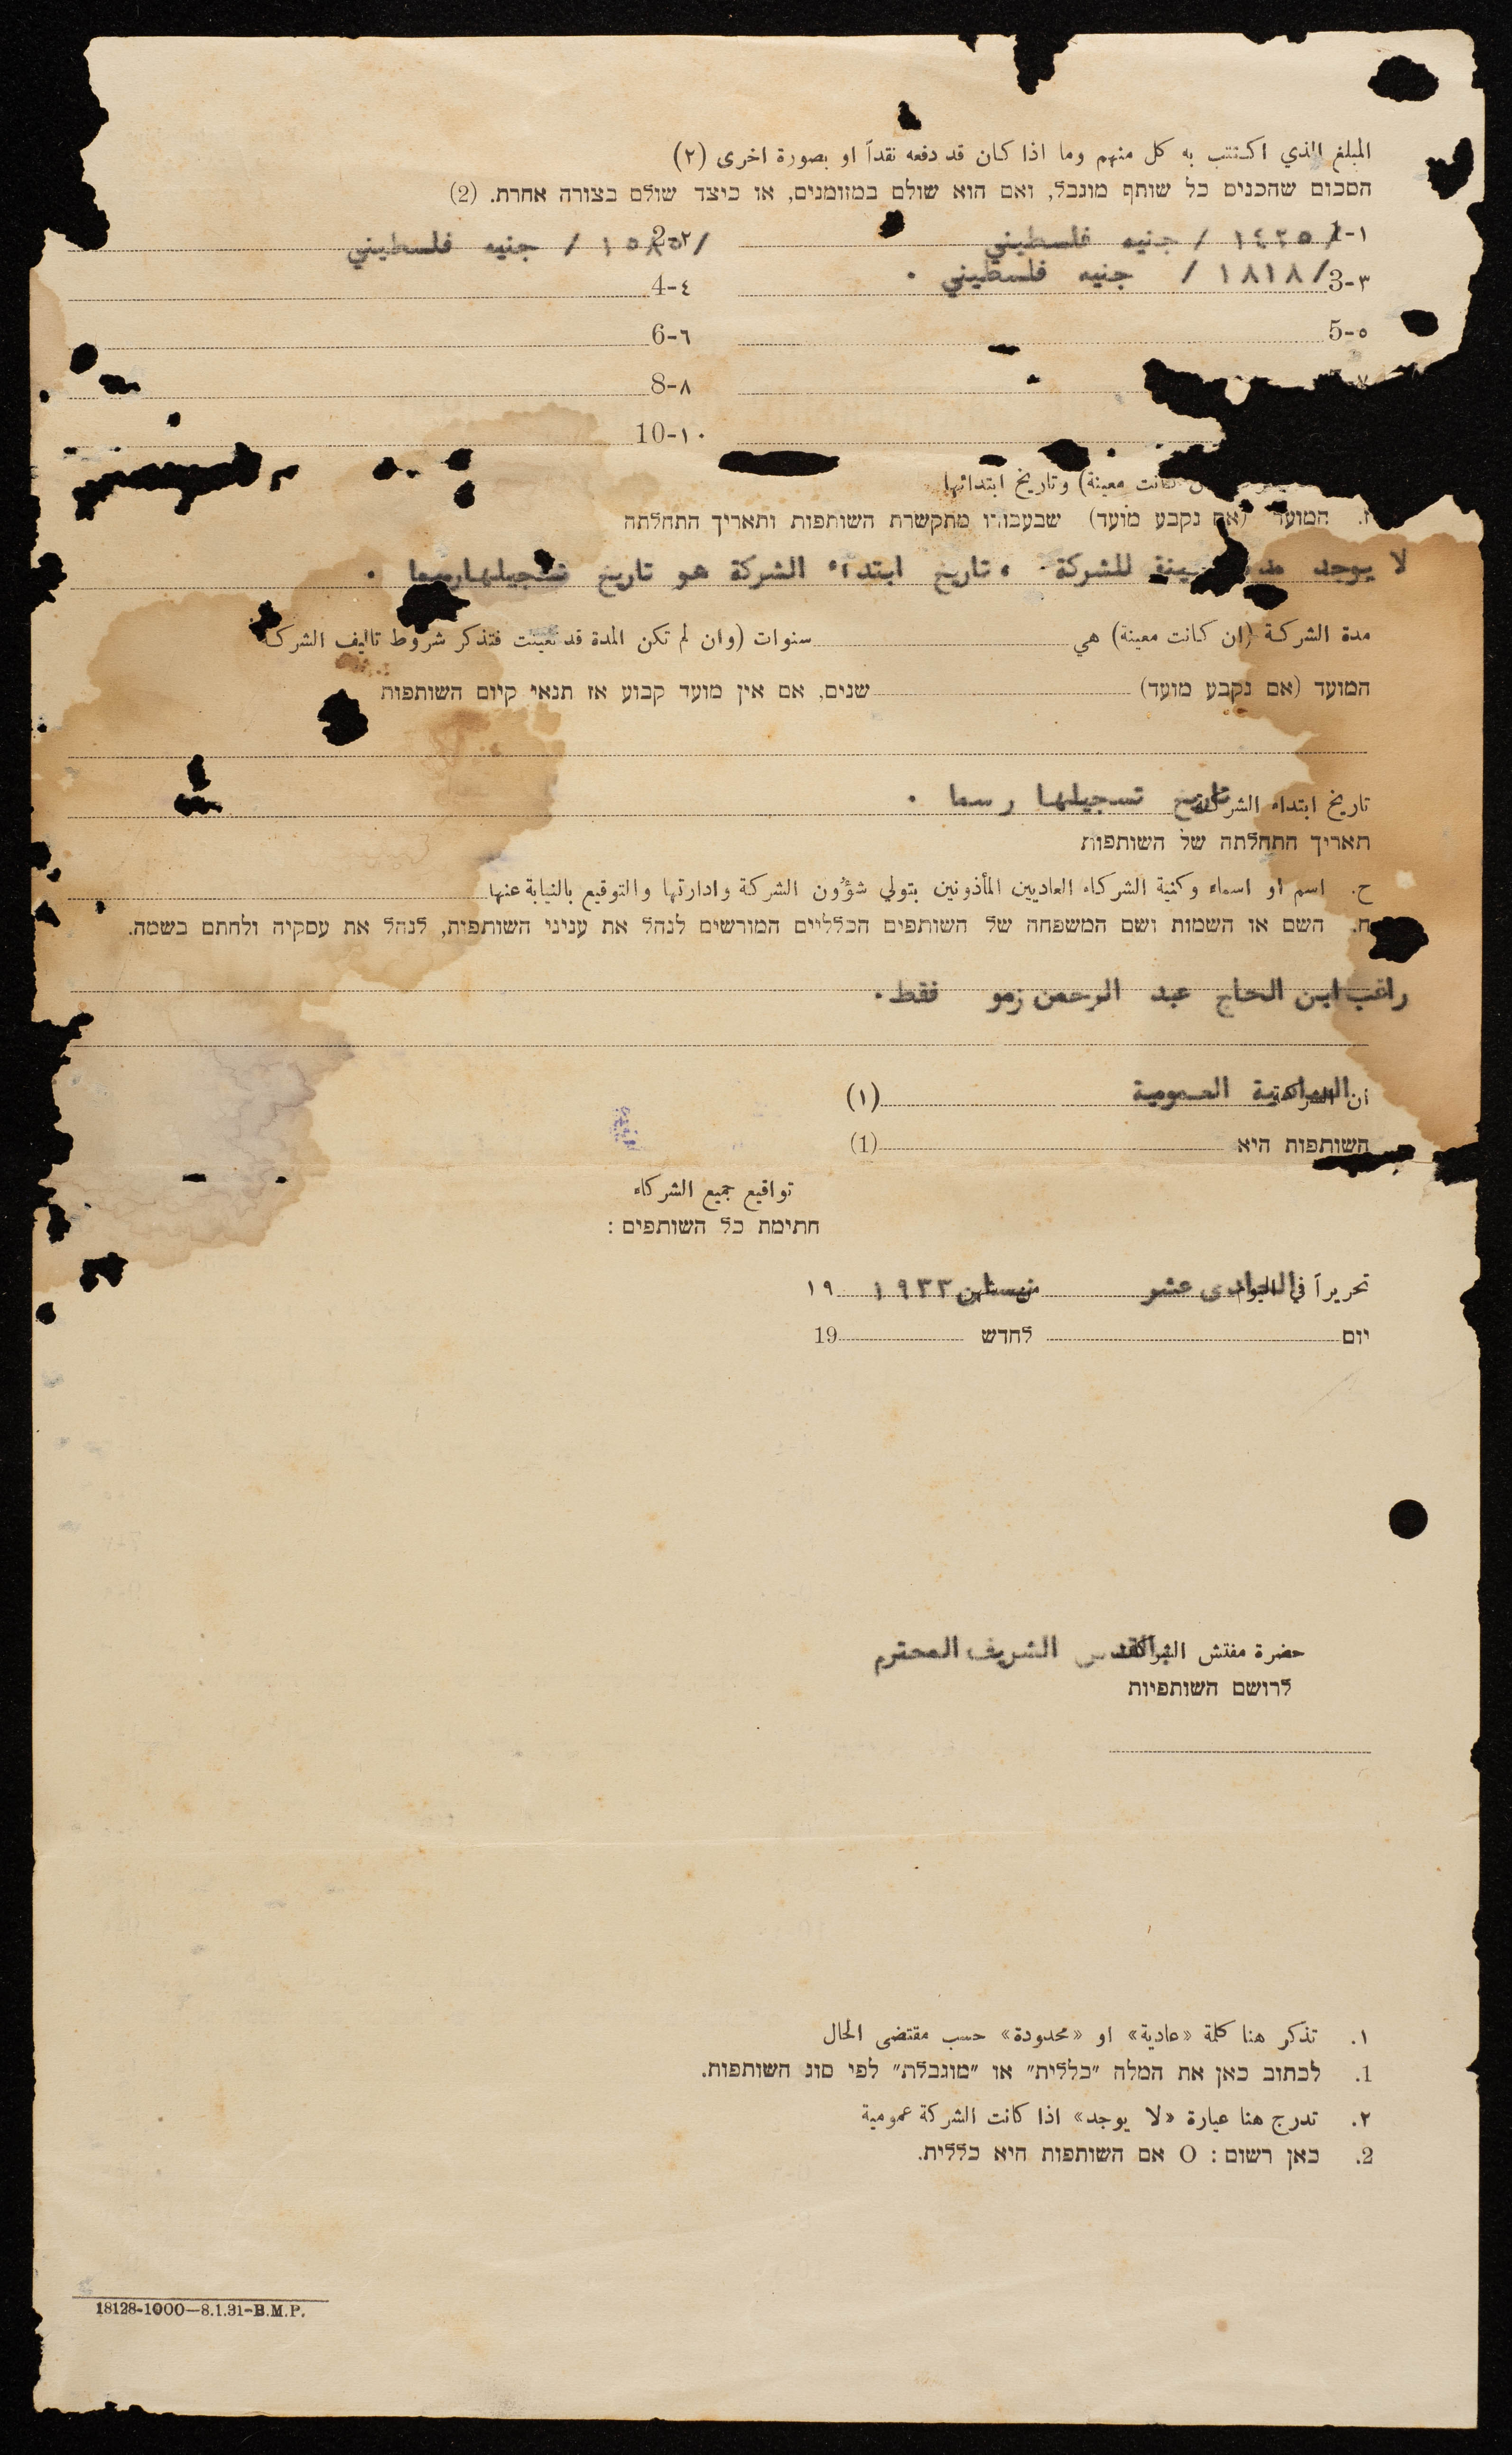 المبلغ الذي اكتتب به كل منهم وما اذا كان قد دفعه نقداً او بصورة اخرى (٢)
הסכום שהכניס כל שותף מוגבל, ואם הוא שולם במזומנים, או כיצד שולם בצורה אחרת. (2)
1-١ /١٤٢٥ / جنيه فلسطيني 2-٢ / جنيه فلسطيني
3-٣ /١٨١٨ / جنيه فلسطيني . 4-٤
5-٥ 6-٦
8-٨
10-١٠
كانت معينة) وتاريخ ابتدائها
ז. המועד (אם נקבע מועד) שבעבורו מתקשרת השותפות ותאריך התחלתה
لا يوجد للشركة . تاريخ ابتداء الشركة هو تاريخ تسجيلها رسما .
مدة الشركة (ان كانت معينة) هي سنوات (وان لم تكن المدة قد تعينت فتذكر شروط تاليف الشركة
המועד (אם נקבע מועד) שנים, אם אין מועד קבוע אז תנאי קיום השותפות
تاريخ ابتداء الشركة تاريخ تسجيلها رسما .
תאריך התחלתה של השותפות
ح. اسم او اسماء وكنية الشركاء العاديين المأذونين بتولي شؤون الشركة وادارتها والتوقيع بالنيابة عنها
ח. השם או השמות ושם המשפחה של השותפים הכלליים המורשים לנהל את עניני השותפות, לנהל את עסקיה ולחתם בשמה.
راغب ابن الحاج عبد الرحمن زمو فقط.
ان العمومية (١)
השותפות היא (1)
تواقيع جميع الشركاء
חתימת כל השותפים :
تحريراً في اليوم الحادى عشر من نيسان ١٩٣٣ ١٩
יום לחדש 19
حضرة مفتش الشركات بالقدس الشريف المحترم
לרושם השותפיות
١. تذكر هنا كلمة «عادية» او «محدودة» حسب مقتضى الحال
1. לכתוב כאן את המלה "כללית" או "מוגבלת" לפי סוג השותפות.
٢. تدرج هنا عبارة «لا يوجد» اذا كانت الشركة عمومية
2. כאן רשום : O אם השותפות היא כללית.
18128-1000—8.1.31-B.M.P.